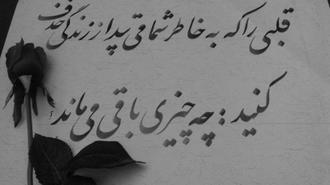 قلبی را که به خاطر شما می تپد از زندگی حذف
کنید : چه چیزی باقی می ماند؟